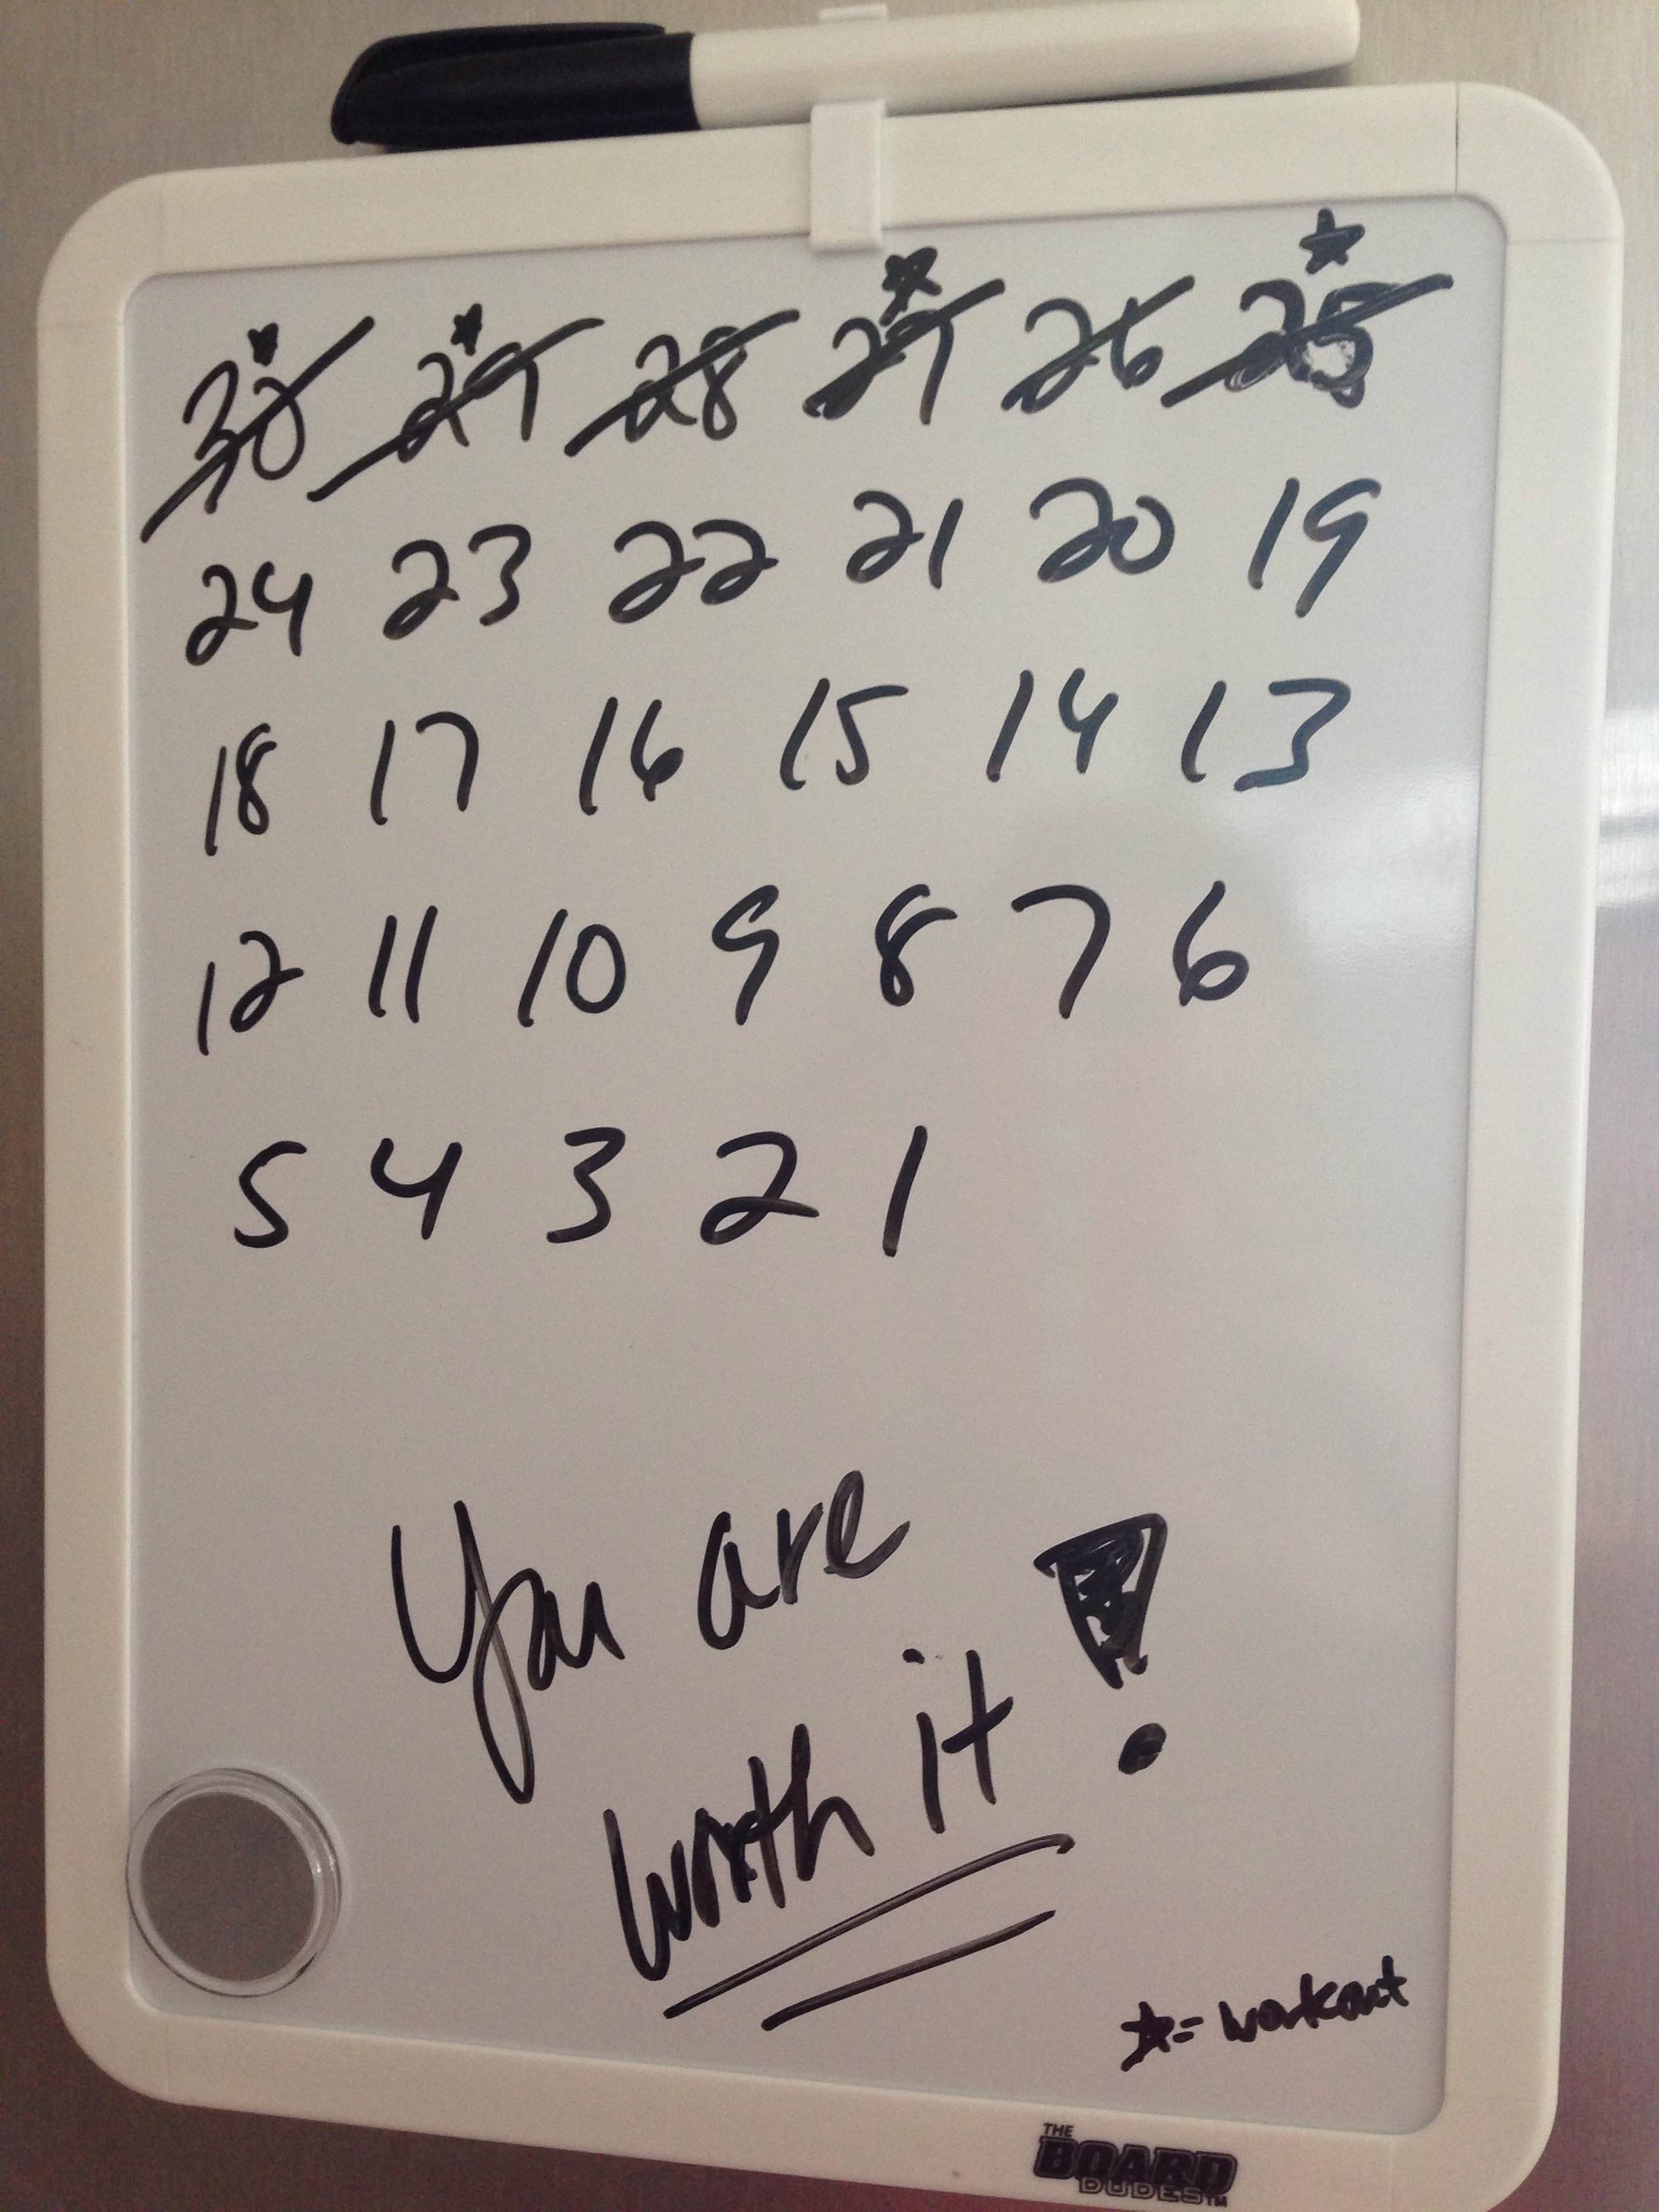 30 29 28 27 26 25
24 23 22 21 20 19
18 17 16 15 14 13
12 11 10 9 8 7 6
5 4 3 2 1
You are
worth it!
★= workout
THE
BOARD
DUDES™